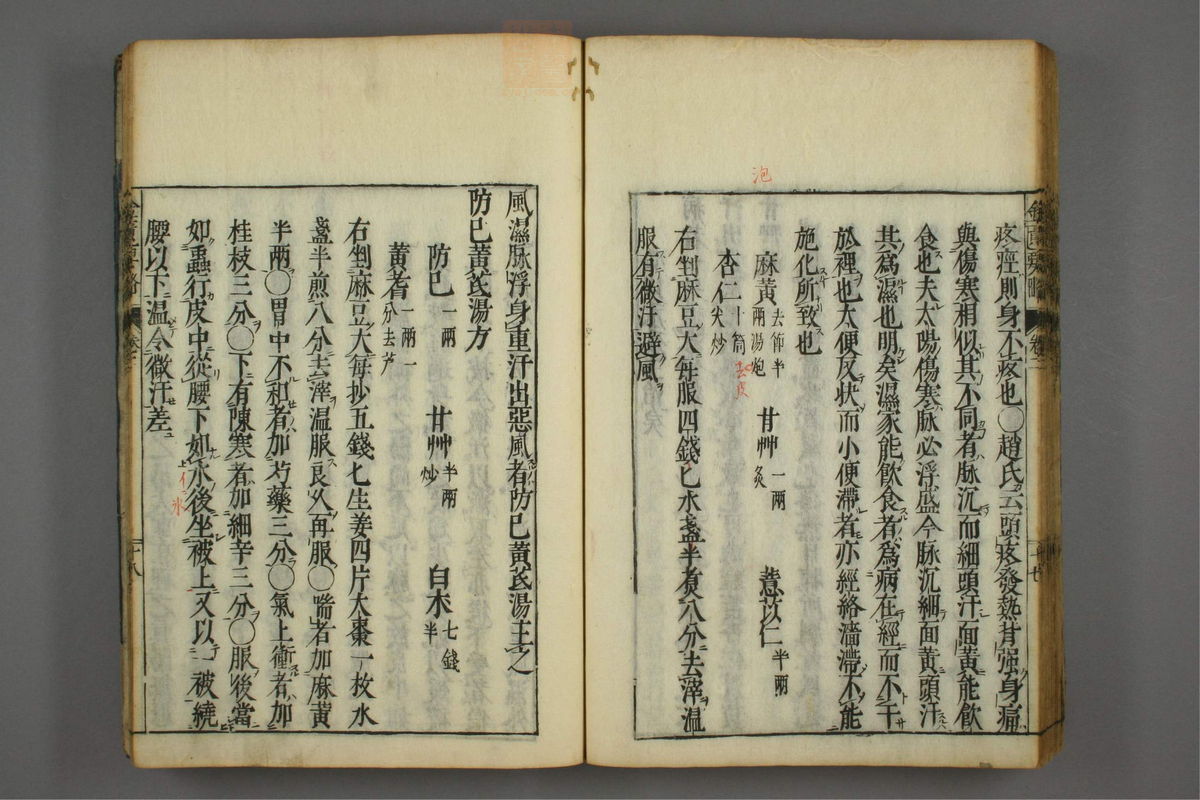 金匱要略
疼痊則身不疼也〇趙氏云頭疼發熱背强身痛
與傷寒相似其不同者脉沉而細頭汗面黄能飲
食也夫太陽傷寒脉必浮盛今脉沉細面黄頭汗
其為濕也明矣濕家能飲食者為病在經而不干
於裡也大便反状而小便滯者亦經絡濇滯不能
施化所致也
泡
麻黄去節半兩湯炮 甘艸一兩炙 薏苡仁半兩
杏仁十箇尖炒
去皮
右剉麻豆大每服四錢匕水盞半煑八分去滓温
服有微汗避風
風濕脉浮身重汗出惡風者防已黄芪湯主之
防已黄芪湯方
防已一兩 甘艸半兩炒 白术七錢半
黄耆一兩一分去芦
右剉麻豆大每抄五錢匕生姜四片大棗一枚水
盞半煎八分去滓温服良久再服〇喘者加麻黄
半兩〇胃中不和者加芍藥三分〇氣上衝者加
桂枝三分〇下有陳寒者加細辛三分〇服後當
如蟲行皮中從腰下如水後坐被上又以一被繞
上作氷
腰以下温令微汗差